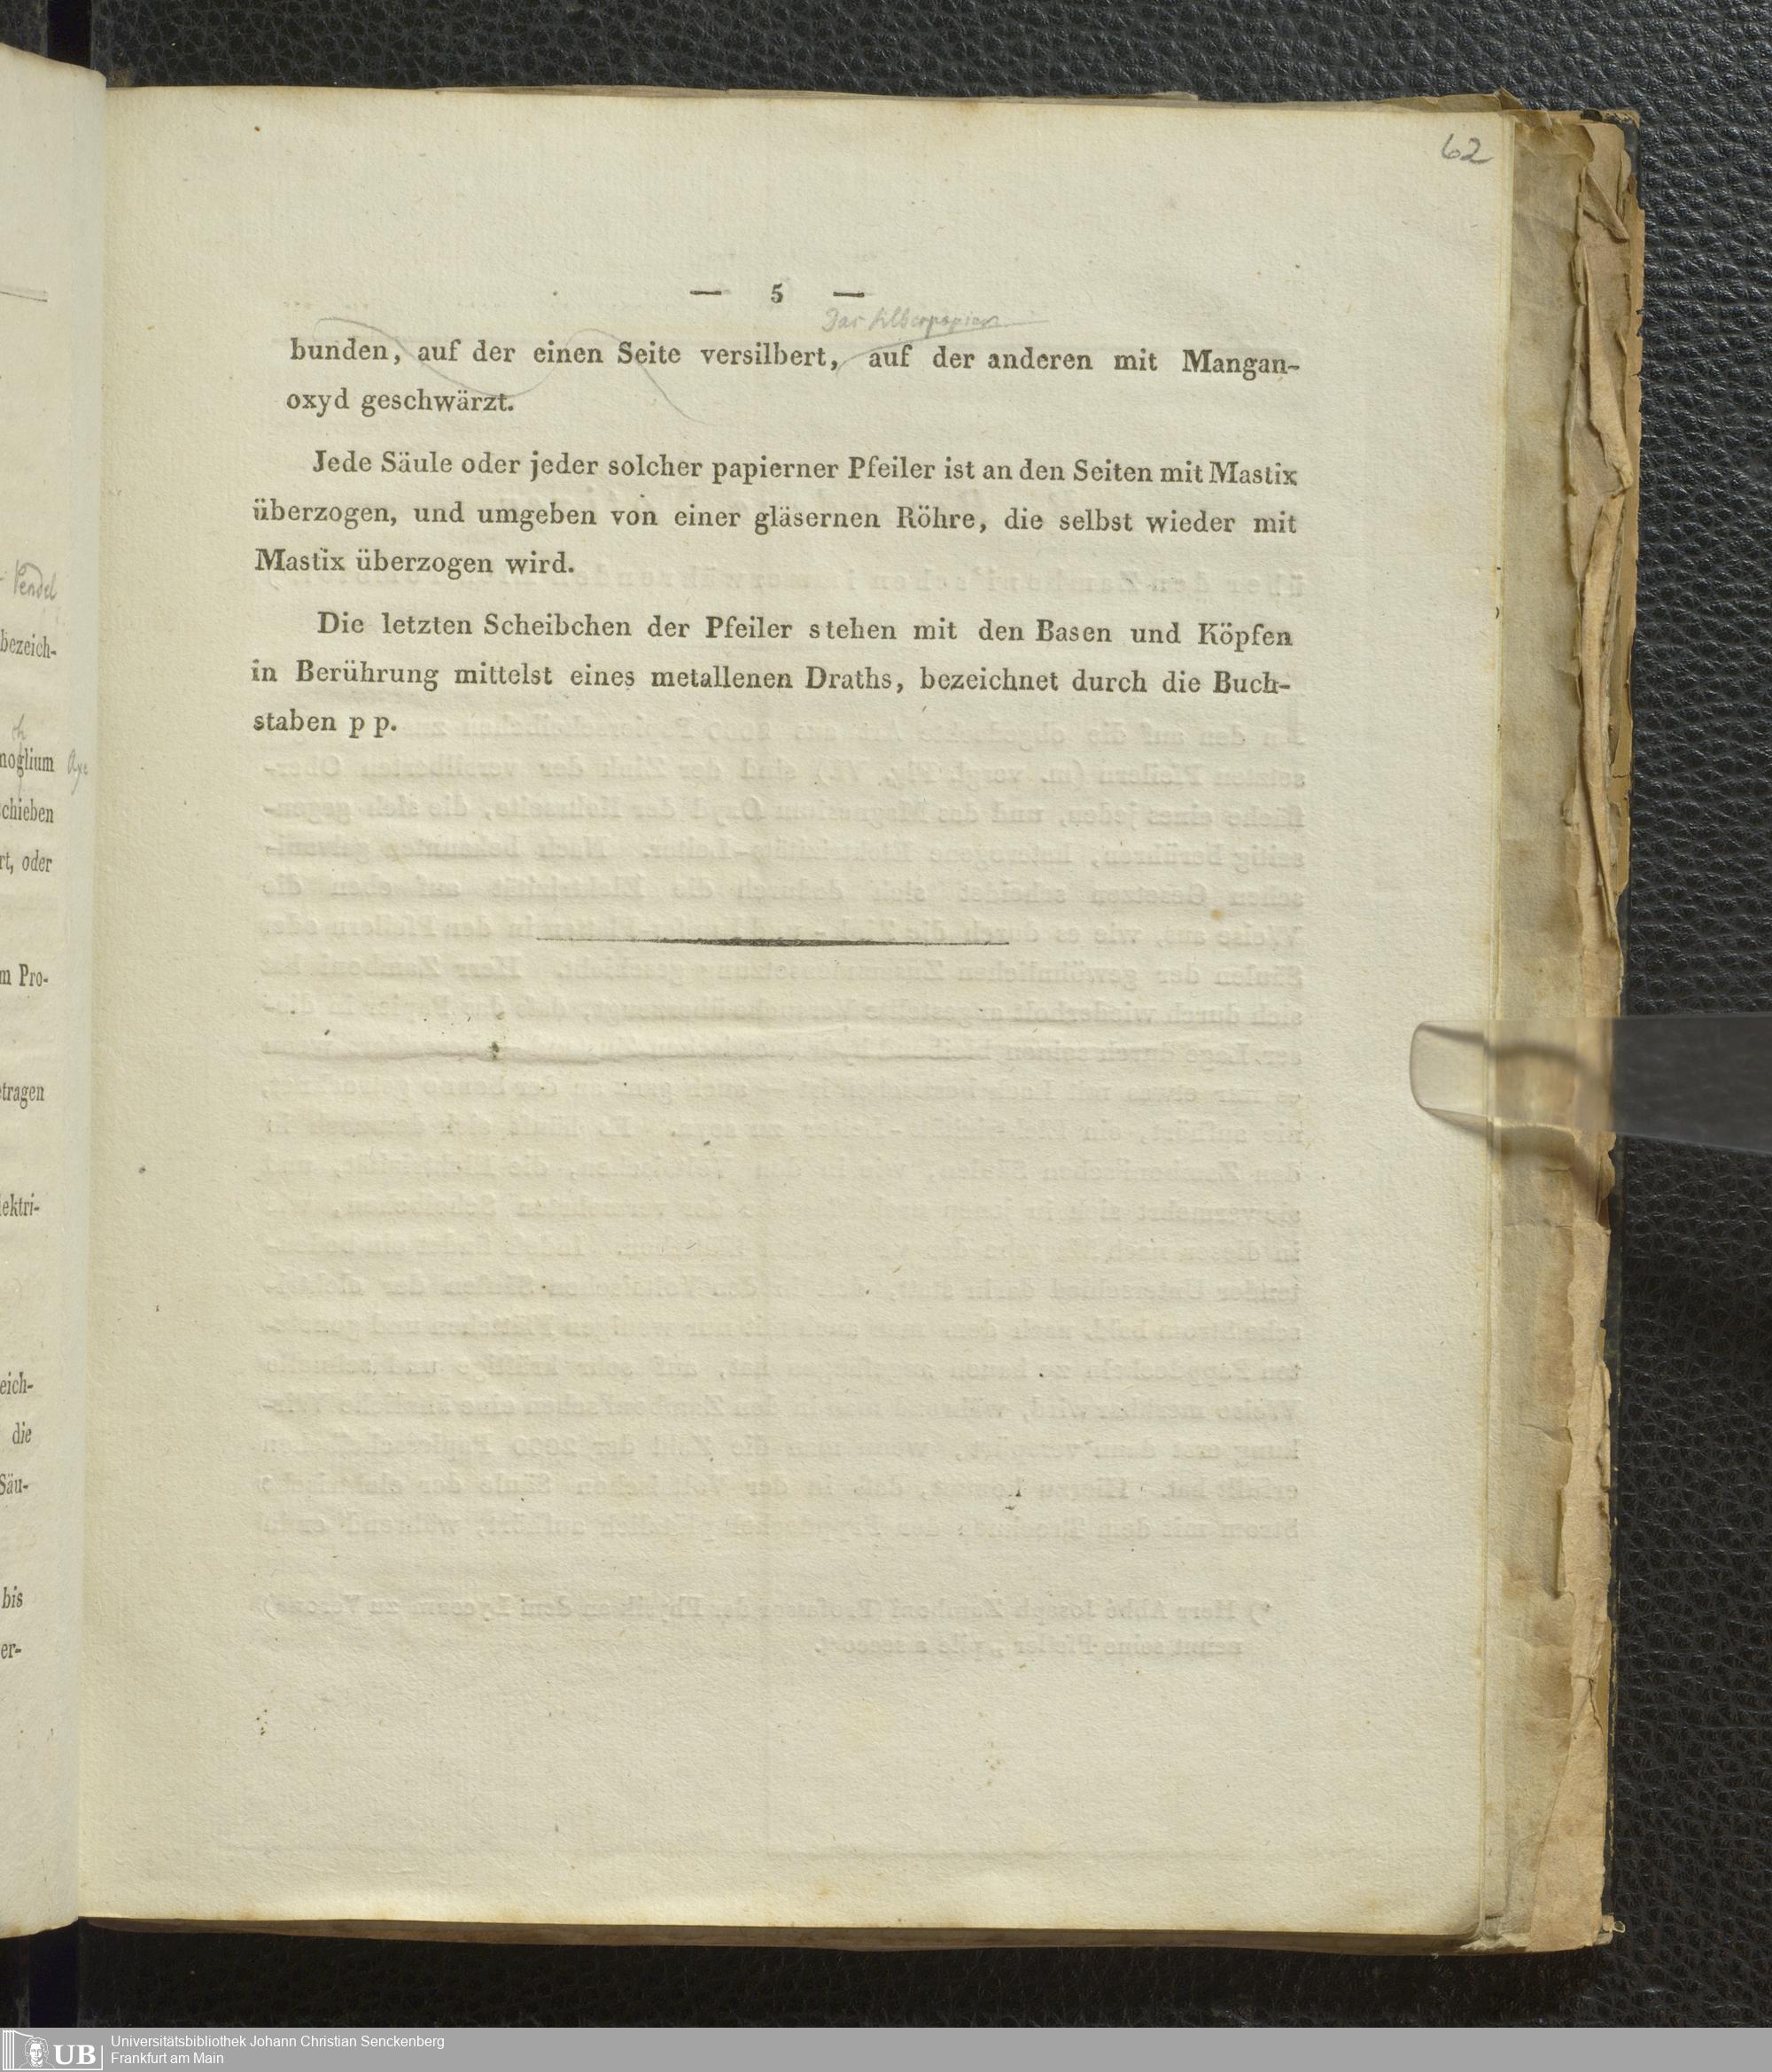 62
— 5 —
Das Silberpapier
bunden, auf der einen Seite versilbert, auf der anderen mit Mangan-
oxyd geschwärzt.
Jede Säule oder jeder solcher papierner Pfeiler ist an den Seiten mit Mastix
überzogen, und umgeben von einer gläsernen Röhre, die selbst wieder mit
Mastix überzogen wird.
Die letzten Scheibchen der Pfeiler stehen mit den Basen und Köpfen
in Berührung mittelst eines metallenen Draths, bezeichnet durch die Buch-
staben p p.
Pendel
bezeich-
moglium
schieben
rt, oder
m Pro-
etragen
lektri-
eich-
die
Säu-
bis
er-
UB Universitätsbibliothek Johann Christian Senckenberg
Frankfurt am Main